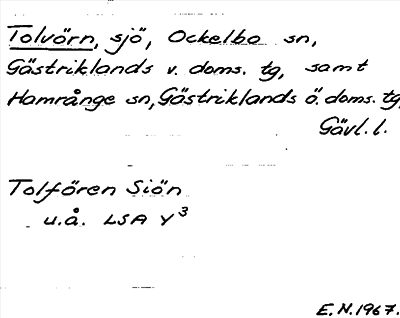 Tolvörn, sjö, Ockelbo sn,
Gästriklands v. doms. tg, samt
Hamrånge sn, Gästriklands ö. doms. tg,
Gävl. l.
Tolfören Siön
u.å. LSA Y³
E.N. 1967.